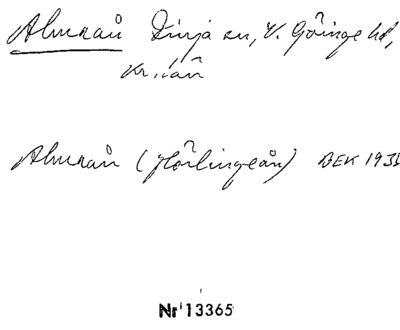 Almaån Finja sn, V. Göinge hd,
Kr. län
Almaån (Hörlingeån) BEK 1935
Nr 13365